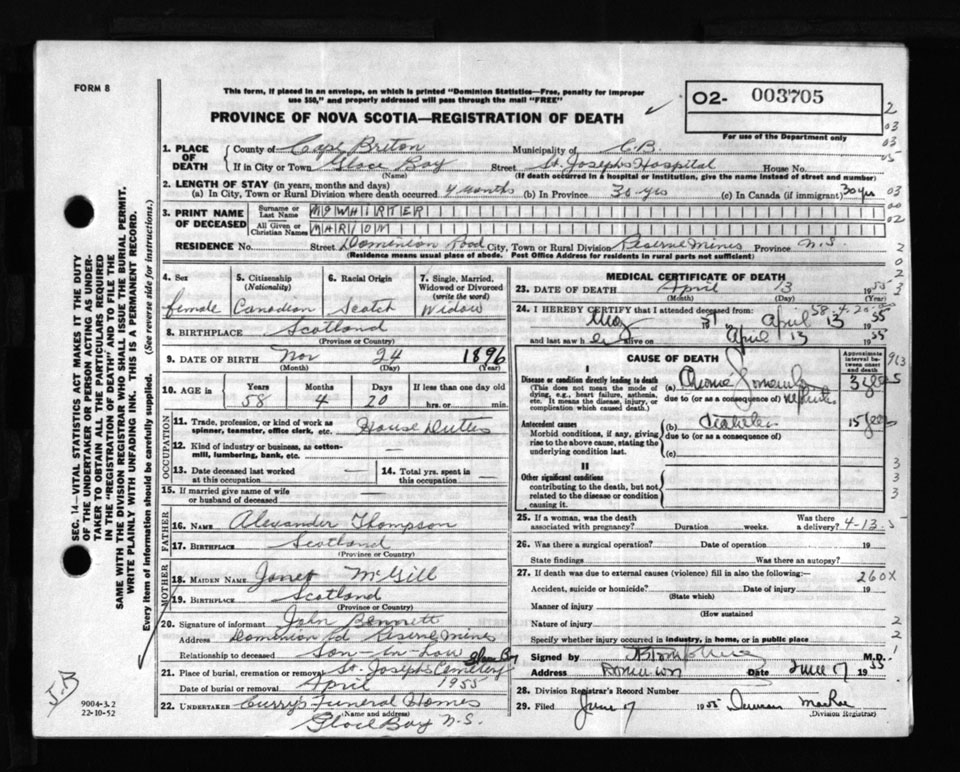 FORM 8
This form, if placed in an envelope, on which is printed "Dominion Statistics—Free, penalty for improper
use $50," and properly addressed will pass through the mail "FREE"
PROVINCE OF NOVA SCOTIA—REGISTRATION OF DEATH
O2- 003705
For use of the Department only
SEC. 14—VITAL STATISTICS ACT MAKES IT THE DUTY
OF THE UNDERTAKER OR PERSON ACTING AS UNDER-
TAKER TO OBTAIN ALL THE PARTICULARS REQUIRED
IN THE "REGISTRATION OF DEATH" AND TO FILE THE
SAME WITH THE DIVISION REGISTRAR WHO SHALL ISSUE THE BURIAL PERMIT.
WRITE PLAINLY WITH UNFADING INK. THIS IS A PERMANENT RECORD.
Every item of information should be carefully supplied. (See reverse side for instructions.)
1. PLACE OF DEATH
County of Cape Breton Municipality of C.B.
If in City or Town Glace Bay Street St. Josephs Hospital House No.
(Name) (If death occurred in a hospital or institution, give the name instead of street and number)
2. LENGTH OF STAY (in years, months and days)
(a) In City, Town or Rural Division where death occurred 4 Months (b) In Province 30 yrs (c) In Canada (if immigrant) 30 yrs
3. PRINT NAME OF DECEASED
Surname or Last Name McWHIRTER
All Given or Christian Names MARION
RESIDENCE No. Street Dominion Road City, Town or Rural Division Reserve Mines Province N.S.
(Residence means usual place of abode. Post Office Address for residents in rural parts not sufficient)
4. Sex female
5. Citizenship (Nationality) Canadian
6. Racial Origin Scotch
7. Single, Married, Widowed or Divorced (write the word) Widow
8. BIRTHPLACE Scotland
(Province or Country)
9. DATE OF BIRTH Nov 24 1896
(Month) (Day) (Year)
10. AGE in Years 58 Months 4 Days 20 If less than one day old hrs. or min.
OCCUPATION
11. Trade, profession, or kind of work as spinner, teamster, office clerk, etc. House Duties
12. Kind of industry or business, as cotton-mill, lumbering, bank, etc. —
13. Date deceased last worked at this occupation —
14. Total yrs. spent in this occupation —
15. If married give name of wife or husband of deceased —
FATHER
16. NAME Alexander Thompson
17. BIRTHPLACE Scotland
(Province or Country)
MOTHER
18. MAIDEN NAME Janet McGill
19. BIRTHPLACE Scotland
(Province or Country)
20. Signature of informant John Bennett
Address Dominion Rd Reserve Mines
Relationship to deceased Son-in-Law
21. Place of burial, cremation or removal St. Josephs Cemetery Glace Bay
Date of burial or removal April 1955
22. UNDERTAKER Curry's Funeral Homes
(Name and address)
Glace Bay N.S.
J.B
9004-3.2
22-10-52
MEDICAL CERTIFICATE OF DEATH
23. DATE OF DEATH April 13 1955
(Month) (Day) (Year)
58-4-20
24. I HEREBY CERTIFY that I attended deceased from:
May 51 to April 13 1955
and last saw h er alive on April 13 1955
CAUSE OF DEATH
Approximate interval between onset and death
I
Disease or condition directly leading to death
(This does not mean the mode of dying, e.g., heart failure, asthenia, etc. It means the disease, injury, or complication which caused death.)
(a) nephritis 3 years
due to (or as a consequence of)
Antecedent causes
Morbid conditions, if any, giving rise to the above cause, stating the underlying condition last.
(b) Diabetes 15 years
due to (or as a consequence of)
(c)
II
Other significant conditions
contributing to the death, but not related to the disease or condition causing it.
25. If a woman, was the death associated with pregnancy? Duration weeks. Was there a delivery? 4-13-5
26. Was there a surgical operation? Date of operation 19
State findings Was there an autopsy?
27. If death was due to external causes (violence) fill in also the following:— 260X
Accident, suicide or homicide? Date of injury 19
(State which)
Manner of injury
(How sustained)
Nature of injury
Specify whether injury occurred in industry, in home, or in public place
Signed by M.D.
Address Dominion Date June 17 1955
28. Division Registrar's Record Number
29. Filed June 17 1955
(Division Registrar)